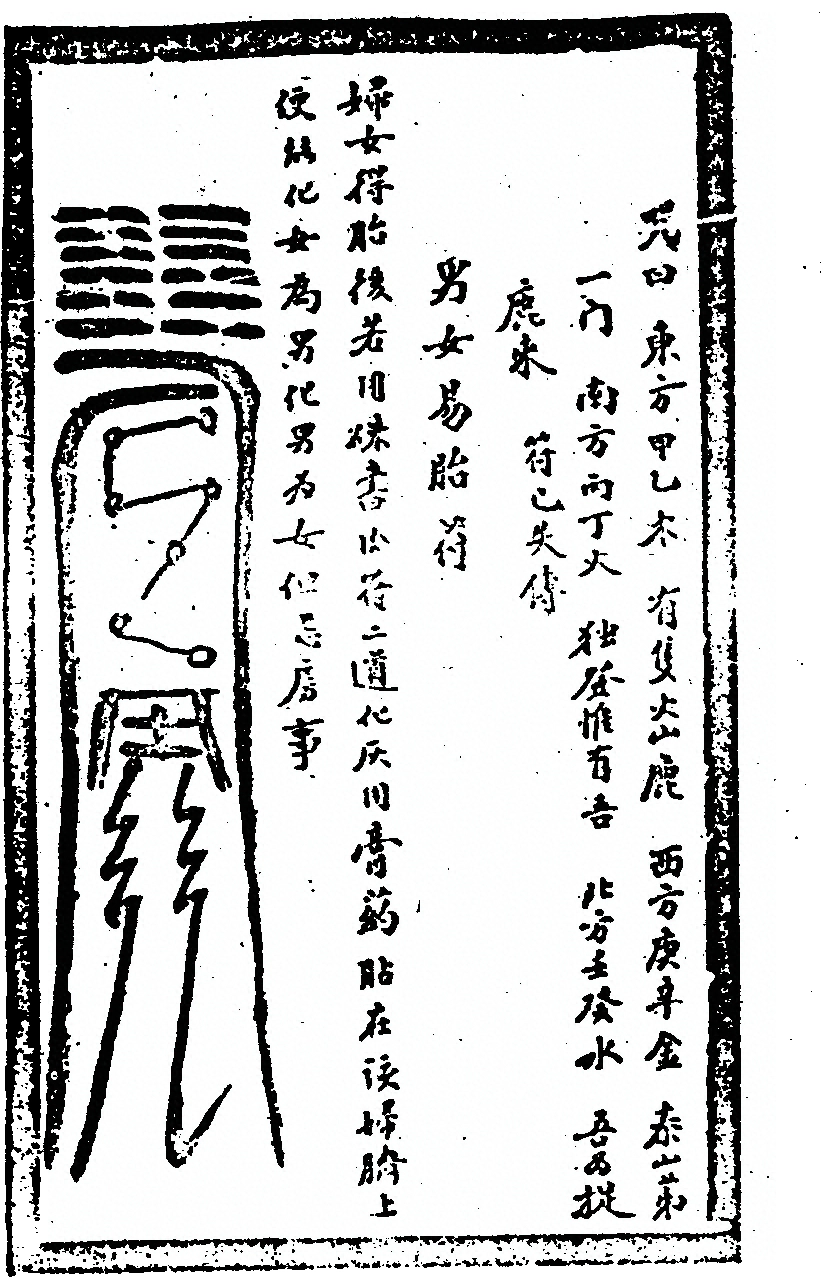 咒曰　東方甲乙木　有隻火山鹿　西方庚辛金　泰山第
一门　南方丙丁火　独登惟有吾　北方壬癸水　吾为捉
鹿来　符已失傳
男女易胎符
婦女得胎後若用硃書此符二道化灰用膏药貼在该婦臍上
便能化女為男化男为女但忌房事